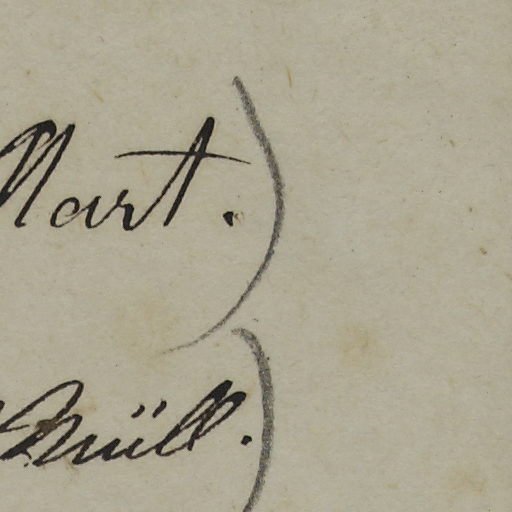 Mart.)
Müll.)